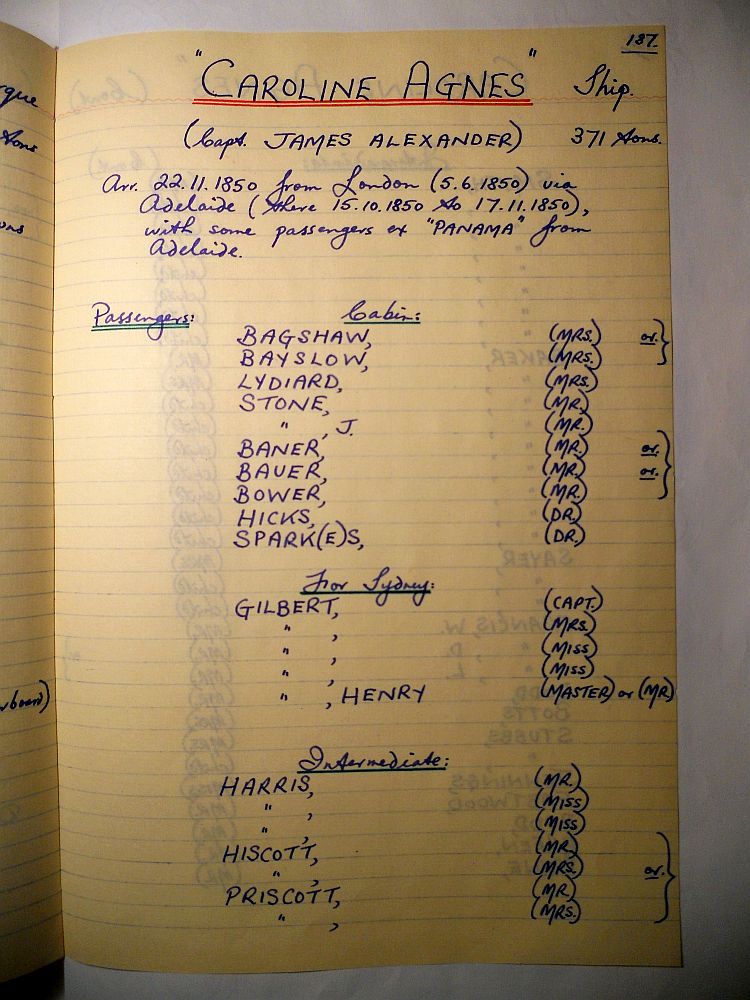 137.
"CAROLINE AGNES" Ship.
(Capt. JAMES ALEXANDER) 371 tons.
Arr. 22.11.1850 from London (5.6.1850) via
Adelaide (there 15.10.1850 to 17.11.1850),
with some passengers ex "PANAMA" from
Adelaide.
Passengers: Cabin:
BAGSHAW, (MRS.) or. }
BAYSLOW, (MRS.)
LYDIARD, (MRS.)
STONE, (MR.)
" , J. (MR.)
BANER, (MR.) or. }
BAUER, (MR.) or.
BOWER, (MR.)
HICKS, (DR.)
SPARK(E)S, (DR.)
For Sydney:
GILBERT, (CAPT.)
" , (MRS.)
" , (MISS)
" , (MISS)
" , HENRY (MASTER) or (MR)
Intermediate:
HARRIS, (MR.)
" , (MISS)
" , (MISS)
HISCOTT, (MR.) or. }
" , (MRS.)
PRISCOTT, (MR.)
" , (MRS.)